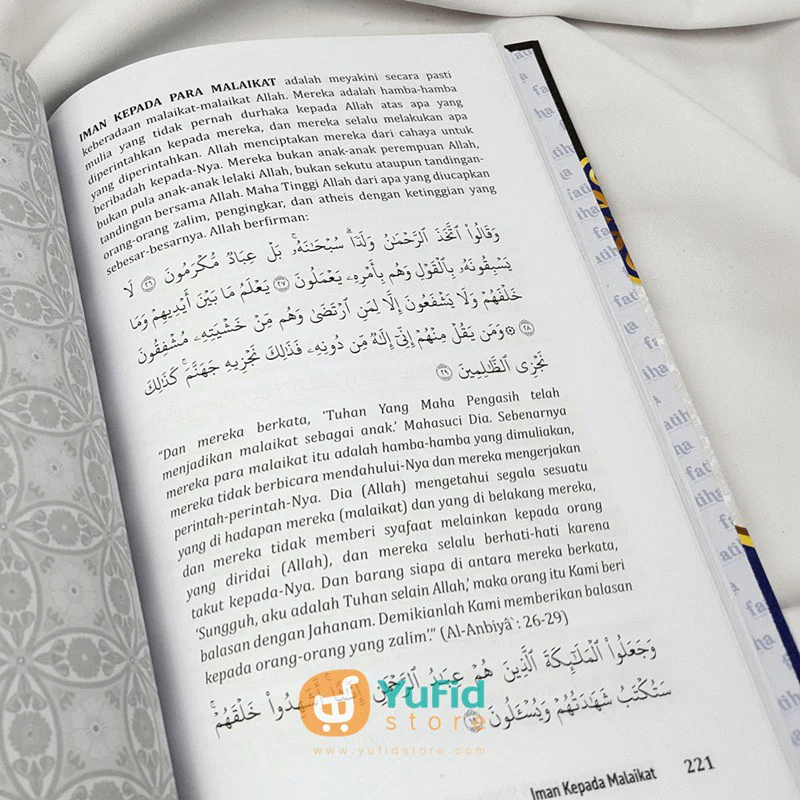 IMAN KEPADA PARA MALAIKAT adalah meyakini secara pasti
keberadaan malaikat-malaikat Allah. Mereka adalah hamba-hamba
mulia yang tidak pernah durhaka kepada Allah atas apa yang
diperintahkan kepada mereka, dan mereka selalu melakukan apa
yang diperintahkan. Allah menciptakan mereka dari cahaya untuk
beribadah kepada-Nya. Mereka bukan anak-anak perempuan Allah,
bukan pula anak-anak lelaki Allah, bukan sekutu ataupun tandingan-
tandingan bersama Allah. Maha Tinggi Allah dari apa yang diucapkan
orang-orang zalim, pengingkar, dan atheis dengan ketinggian yang
sebesar-besarnya. Allah berfirman:
وَقَالُوا۟ ٱتَّخَذَ ٱلرَّحْمَٰنُ وَلَدًا ۗ سُبْحَٰنَهُۥ ۚ بَلْ عِبَادٌ مُّكْرَمُونَ ٢٦ لَا
يَسْبِقُونَهُۥ بِٱلْقَوْلِ وَهُم بِأَمْرِهِۦ يَعْمَلُونَ ٢٧ يَعْلَمُ مَا بَيْنَ أَيْدِيهِمْ وَمَا
خَلْفَهُمْ وَلَا يَشْفَعُونَ إِلَّا لِمَنِ ٱرْتَضَىٰ وَهُم مِّنْ خَشْيَتِهِۦ مُشْفِقُونَ
٢٨ ۞ وَمَن يَقُلْ مِنْهُمْ إِنِّىٓ إِلَٰهٌ مِّن دُونِهِۦ فَذَٰلِكَ نَجْزِيهِ جَهَنَّمَ ۚ كَذَٰلِكَ
نَجْزِى ٱلظَّٰلِمِينَ ٢٩
"Dan mereka berkata, 'Tuhan Yang Maha Pengasih telah
menjadikan malaikat sebagai anak.' Mahasuci Dia. Sebenarnya
mereka para malaikat itu adalah hamba-hamba yang dimuliakan,
mereka tidak berbicara mendahului-Nya dan mereka mengerjakan
perintah-perintah-Nya. Dia (Allah) mengetahui segala sesuatu
yang di hadapan mereka (malaikat) dan yang di belakang mereka,
dan mereka tidak memberi syafaat melainkan kepada orang
yang diridai (Allah), dan mereka selalu berhati-hati karena
takut kepada-Nya. Dan barang siapa di antara mereka berkata,
'Sungguh, aku adalah Tuhan selain Allah,' maka orang itu Kami beri
balasan dengan Jahanam. Demikianlah Kami memberikan balasan
kepada orang-orang yang zalim.'" (Al-Anbiyâ`: 26-29)
وَجَعَلُوا۟ ٱلْمَلَٰٓئِكَةَ ٱلَّذِينَ هُمْ عِبَٰدُ ٱلرَّحْمَٰنِ إِنَٰثًا ۚ أَشَهِدُوا۟ خَلْقَهُمْ ۚ
سَتُكْتَبُ شَهَٰدَتُهُمْ وَيُسْـَٔلُونَ ١٩
YuFid
store
www.yufidstore.com
Iman Kepada Malaikat 221